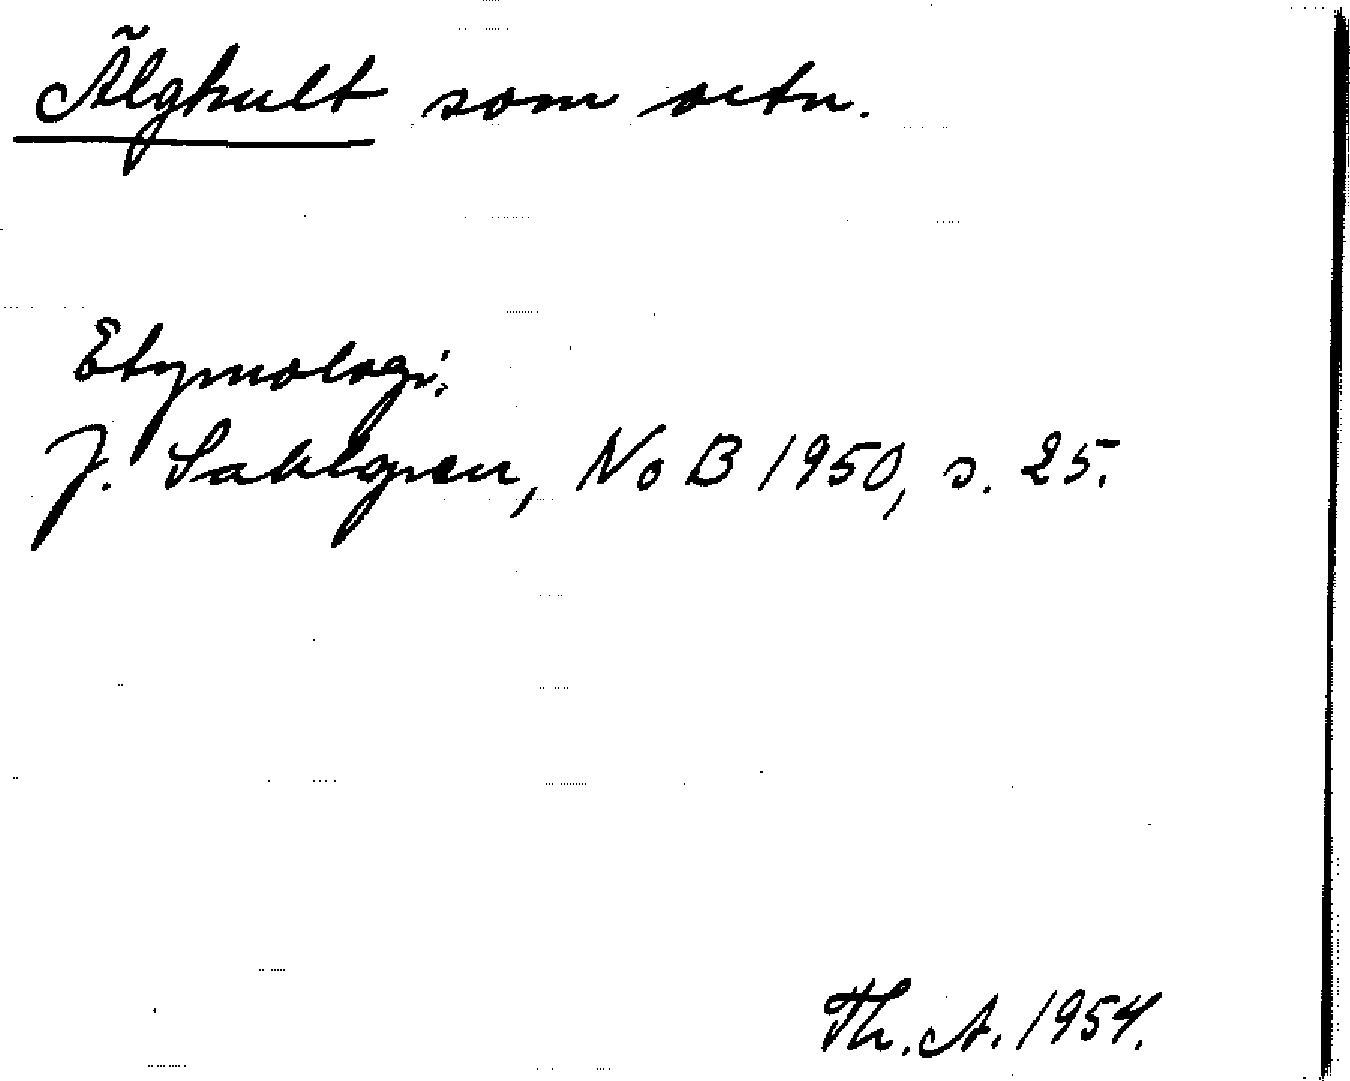 Älghult som ortn.
Etymologi:
J. Sahlgren, NoB 1950, s. 25.
Th. A. 1954.